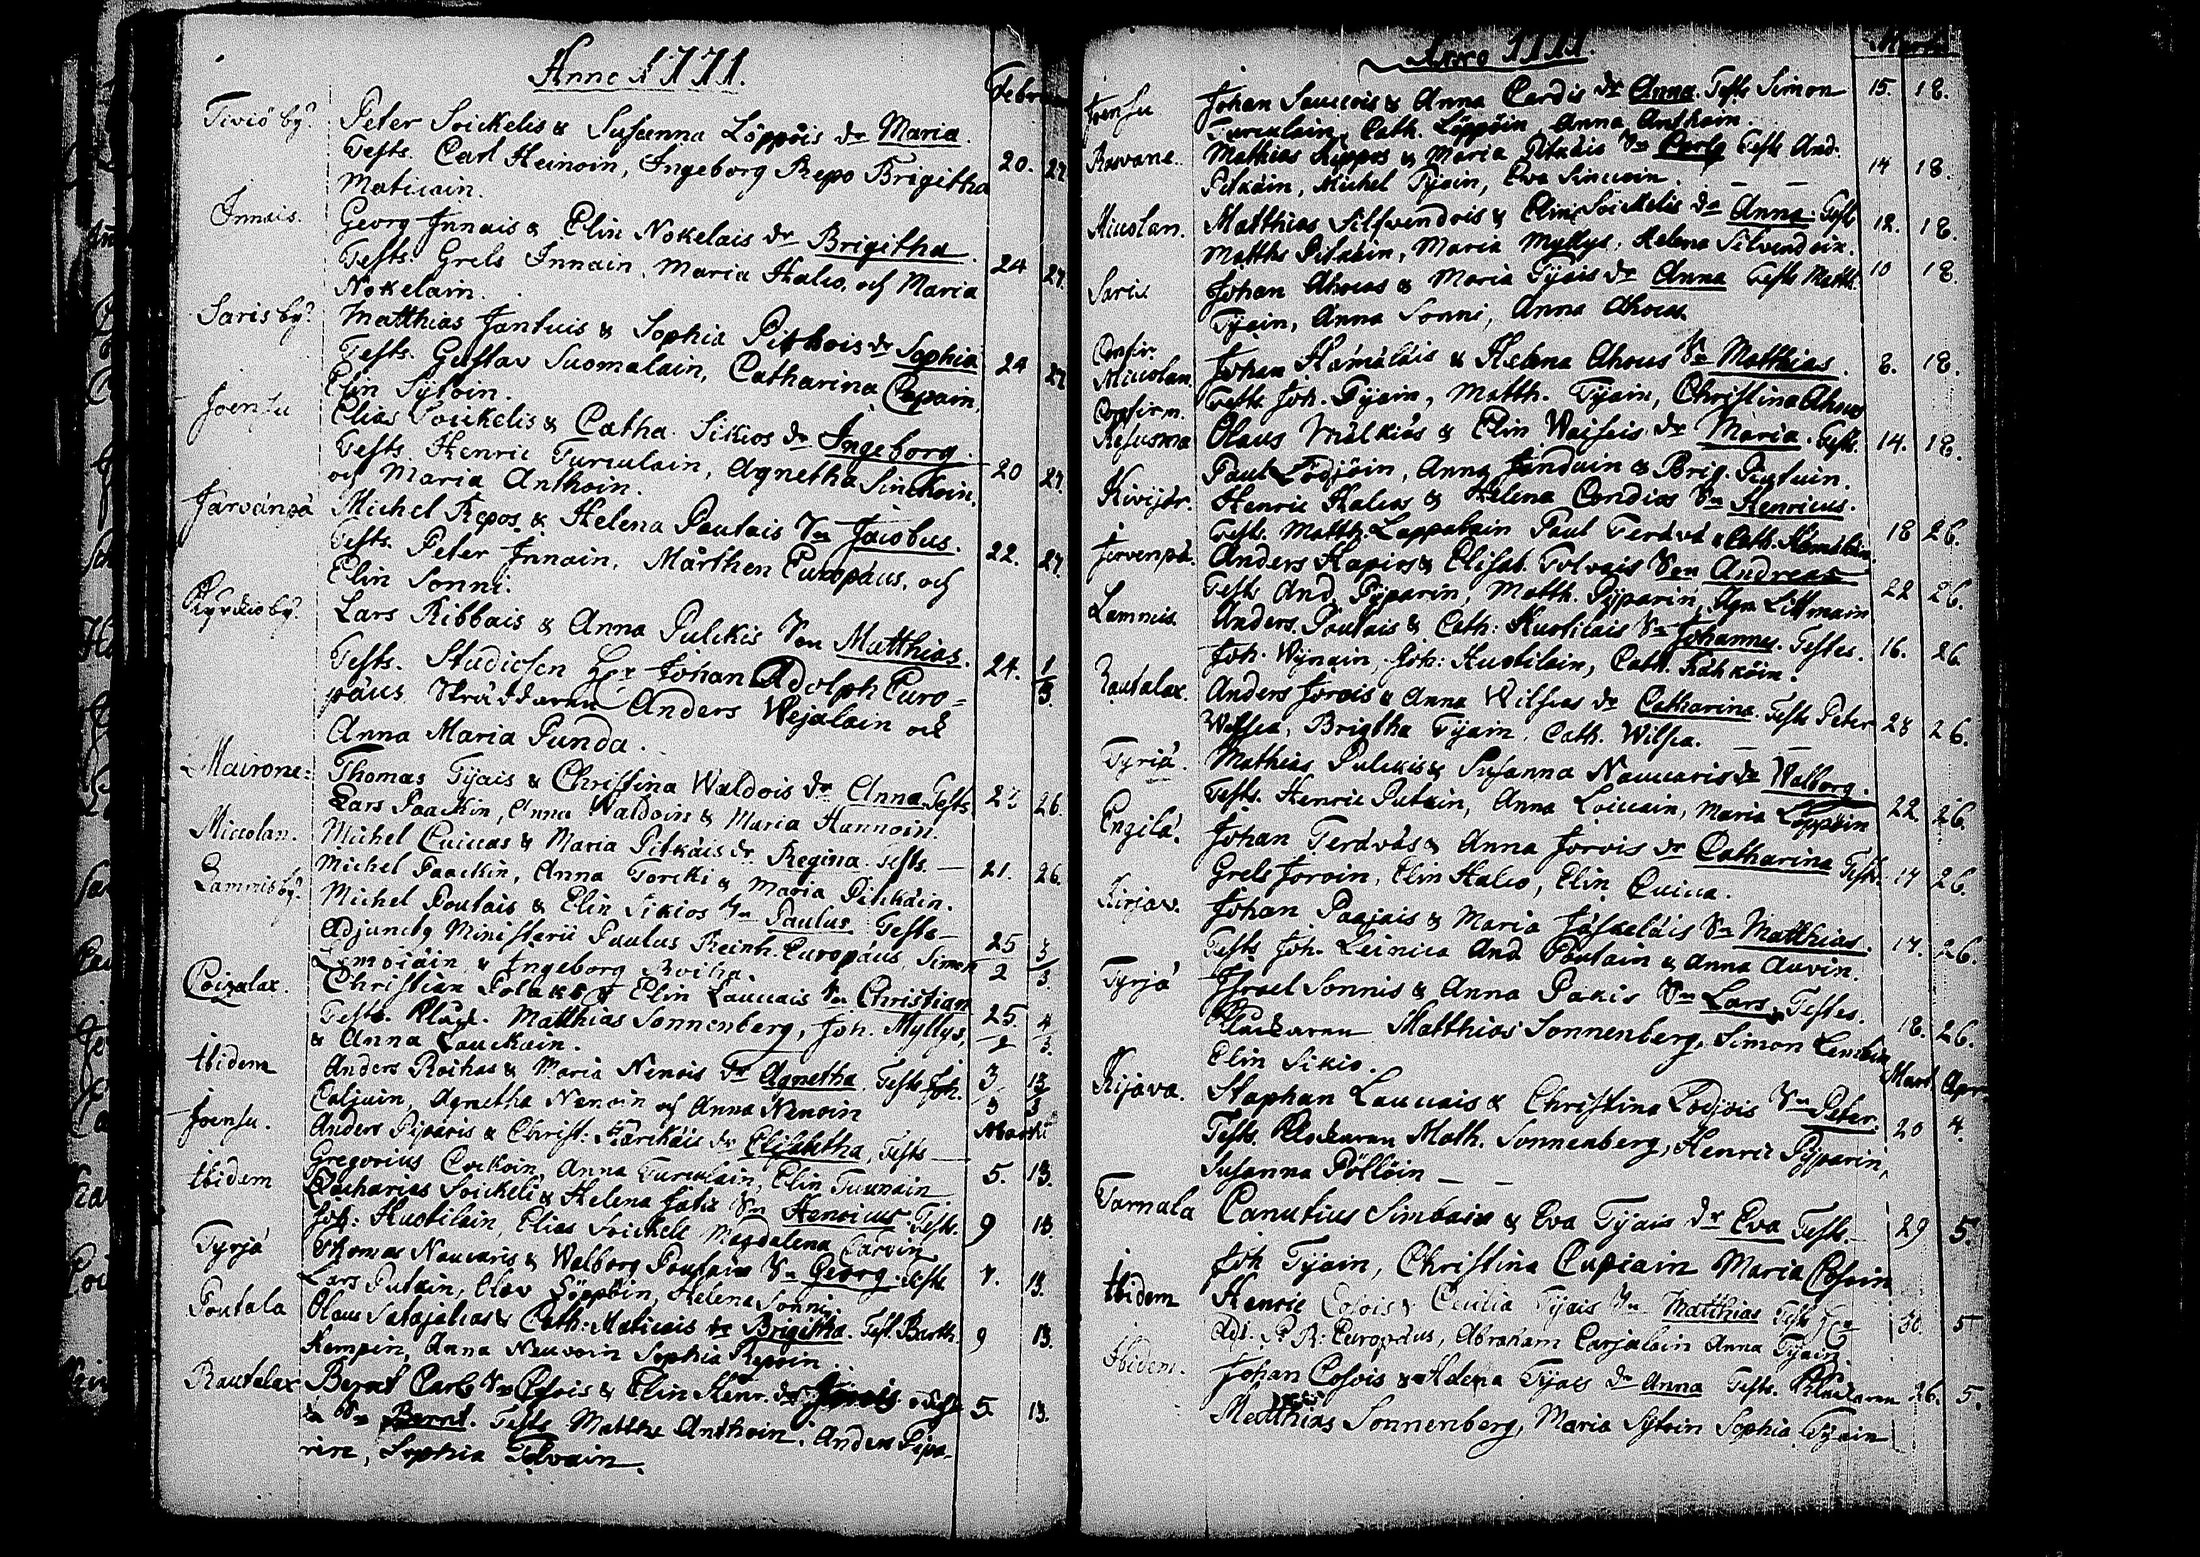 Anno 1771.
Febru
Tiviö by. Peter Soickelis & Susanna Löppöis dr Maria.
Tests. Carl Heinoin, Ingeborg Repo Brigitha 20. 27
Maticain.
Innais. Georg Innais & Elin Nokelais dr Brigitha.
Tests. Grels Innain, Maria Halco, och Maria 24 27.
Nokelain.
Saris by. Matthias Jantuis & Sophia Pitkois dr Sophia
Tests. Gustav Suomalain, Catharina Capain, 24 27
Elin Sytöin.
Joensu Elias Soickelis & Catha. Sikios dr Ingeborg.
Tests. Henric Turculain, Agnetha Sinckoin, 20 27.
och Maria Anthoin.
Järvänpä Michel Repos & Helena Poutais Sn Jacobus.
Tests. Peter Innain, Mårthen Europäus, och 22. 27.
Elin Sonni.
Lars Ribbais & Anna Pulckis Son Matthias.
Tests. Studiosen Hr Johan Adolph Euro= 24. 1/3.
päus Anders Wejalain och
Anna Maria Punda.
Mairone= Thomas Tijais & Christina Waldois dr Anna Tests
Lars Paackin, Anna Waldoin & Maria Hannoin. 26.
Micolan. Michel Cuicas & Maria Pitkäis dr Regina. Tests. —
Michel Paackin, Anna Torcki & Maria Pitckäin. 21. 26.
Lamnisby. Michel Poutais & Elin Sikios Sn Paulus Tests —
Adjunctg Ministerii Paulus Reinh. Europäus, Simon 25/2 3/3.
Lemoiäin, & Ingeborg Roiha.
Coizalax. Christian Polaks & Elin Laucais Sn Christian
Tests. Klåck. Matthias Sonnenberg, Joh. Myllys, 25./2 4/3.
& Anna Lauckain.
Ibidem Anders Roihas & Maria Nenois dr Agnetha. Tests Joh. 3/3 13/3
Caljuin, Agnetha Nenoin och Anna Nenoin
Martii
Joensu. Anders Piparis & Christ: Kärckäis dr Elisabetha, Tests —
Gregorius Cockoin, Anna Turculain, Elin Tuunain 5. 13.
Ibidem Zacharias Soickelis & Helena Jatis Sn Henricus. Tests.
Joh: Kuotilain, Elias Soickele Magdalena Carvin 9 13.
Tyrjä Thomas Naucaris & Walborg Poutain Sn Georg. Tests
Lars Putain, Olov Löppöin, Helena Sonni. 7. 13.
Poutala Olaus Satajalcas & Cath: Maticais dr Brigitha. Test. Barth.
Kempin, Anna Neuvoin Sophia Repoin 9 13.
Rautalax Bernt Carls Sn Cosois & Elin Henr. dr
Sn Bernt. Tests Matths Anthoin. Anders Pipa- 5. 13.
rien, Sophia Tolvain.
Anno 1771.
Joensu Johan Saucois & Anna Cardis dr Anna. Tests Simon 15 18.
Turculain, Cath. Löppöin Anna Anthoin.
Ravane. Mathias Reppos & Maria Pitkäis Sn Carlg Tests And. 14 18.
Pitkäin, Michel Tijain, Eva Sincoin.
Micolan. Matthias Silfvendois & Elin Soickelis dr Anna. Tests 12. 18.
Matths Pitkäin, Maria Myllys, Helena Silvendoin.
Saris Johan Ahocas & Maria Tijais dr Anna Tests Matth. 10 18.
Tijain, Anna Sonni, Anna Ahocas
Confir.
Micolan Johan Hämäläis & Helena Ahocas Sn Matthias. 8. 18.
Tests Joh. Tijain, Matth. Tijain, Christina Ahocas
Confirm.
Rasusma Olaus Mälkiäs & Elin Waisais dr Maria. Tests. 14. 18.
Paul Lodjöin, Anna Janduin & Brig. Puutuin.
Kivijär. Henric Halcos & Helena Condias Sn Henricus.
Tests. Matth. Lappalain Paul Terävä & Cath. Hämäläin 18 26.
Järvenpä. Anders Hapios & Elisab. Tolvais Son Andreas
Tests And. Pijparin, Matth. Pijparin, Agn Littmain 22 26.
Lamnis Anders Poutais & Cath: Kuotilais Sn Johannes. Testes.
Joh. Wijnain, Joh: Kuotilain, Cath. Kähköin. 16. 26
Rautalax. Anders Jorois & Anna Wilskas dr Catharina. Tests Peter 28 26.
Wilska, Brigtha Tijain, Cath. Wilsca.
Tyrjä. Mathias Pulckis & Susanna Naucaris dr Walborg.
Tests. Henric Putain, Anna Loicain, Maria Löppöin 22. 26.
Engilä. Johan Terävås & Anna Jorois dr Catharina Tests.
Grels Joroin, Elin Halco, Elin Cuica. 17 26.
Kirjav. Johan Paajais & Maria Jäskeläis Sn Matthias.
Tests Joh. Leinica And Poutain & Anna Auvin. 17. 26.
Tyrjä Israel Sonnis & Anna Pakis Sn Lars, Testes.
Klåckaren Matthias Sonnenberg, Simon 18. 26.
Elin Sikio.
Mart Apr
Kijava. Staphan Laucais & Christina Lodjöis Sn Peter.
Tests. Klockaren Math. Sonnenberg, Henric Pijparin, 20 4.
Susanna Pöllöin
Tarnala Canutius Simbais & Eva Tijais dr Eva Tests. 29 5.
Joh Tijain, Christina Cupiain Maria Cosoin
Ibidem Henric Cosois & Cecilia Tijais Sn Matthias Tests Hr 30. 5
Adj. P. R: Europäus, Abraham Carjalain Anna Tijain
Ibidem. Johan Cosois & Helena Tijais dr Anna Tests. Klåckaren 26. 5.
Matthias Sonnenberg, Maria Sytöin Sophia Tijain